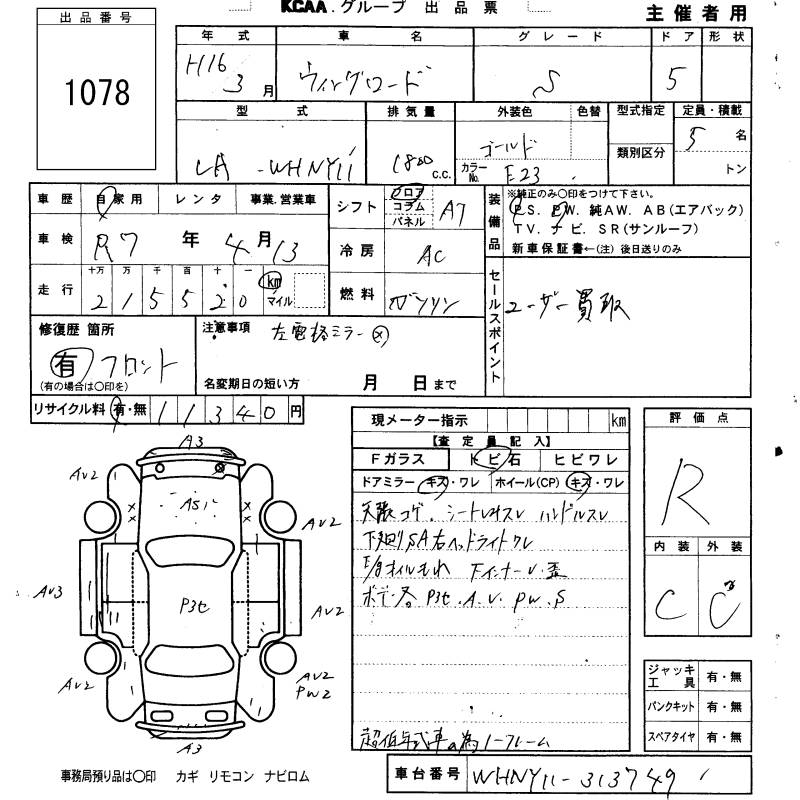 KCAA.グループ 出品票
主催者用
出品番号
1078
年式 車名 グレード ドア 形状
H16 3月 ウィングロード S 5
型式 排気量 外装色 色替 型式指定 定員・積載
LA-WHNY11 1800 c.c. ゴールド カラーNo. E23 類別区分 5名 トン
車歴 自家用 レンタ 事業.営業車
シフト フロア コラム パネル AT
装備品 ※純正のみ○印をつけて下さい。
P.S. P.W. 純AW. AB(エアバック)
TV. ナビ. SR(サンルーフ)
新車保証書←(注)後日送りのみ
車検 R7年 4月 13
冷房 AC
走行 十万 万 千 百 十 一 km マイル
215520
燃料 ガソリン
セールスポイント
ユーザー買取
修復歴 箇所
有 フロント
(有の場合は○印を)
注意事項 左電格ミラー
名変期日の短い方 月 日まで
リサイクル料 有・無 11340円
現メーター指示 km
【査定員記入】
Fガラス トビ石 ヒビワレ
ドアミラー キズ・ワレ ホイール(CP) キズ・ワレ
天張コゲ.シートレスレ ハンドルスレ
下廻りSA右ヘッドライトワレ
E/gオイルもれ FインナーV.歪
ボデー.P3セ.A.V.PW.S
超低年式車の為ノークレーム
評価点
R
内装 外装
C C
ジャッキ工具 有・無
パンクキット 有・無
スペアタイヤ 有・無
A3
AV2
AV2
AV3
AV2
AV2
AV2
PW2
A3
P3セ
事務局預り品は○印 カギ リモコン ナビロム
車台番号 WHNY11-313749